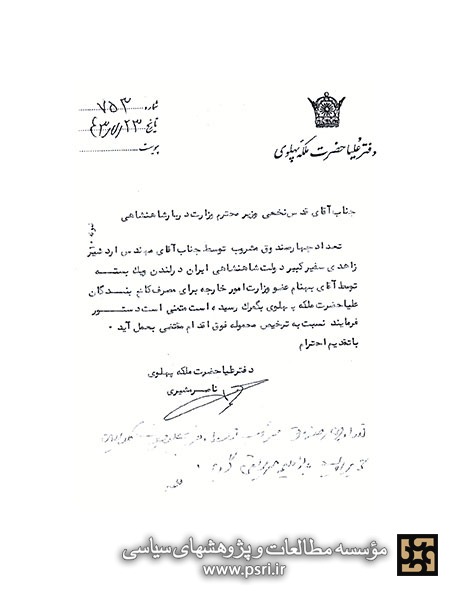 شماره ۷۵۳
تاریخ
پیوست
دفتر علیاحضرت ملکه پهلوی
جناب آقای قدس نخعی وزیر محترم وزارت دربار شاهنشاهی
تعداد چهار صندوق مشروب توسط جناب آقای مهندس اردشیر
زاهدی سفیر کبیر دولت شاهنشاهی ایران در لندن ویک بسته
توسط آقای بهنام عضو وزارت امور خارجه برای مصرف کاخ بندگان
علیا حضرت ملکه پهلوی بگمرک رسیده است متمنی است دستور
فرمایند نسبت به ترخیص محموله فوق اقدام مقتضی بعمل آید ۰
با تقدیم احترام
دفتر علیا حضرت ملکه پهلوی
ناصر مشیری
مؤسسه مطالعات و پژوهشهای سیاسی
www.psri.ir